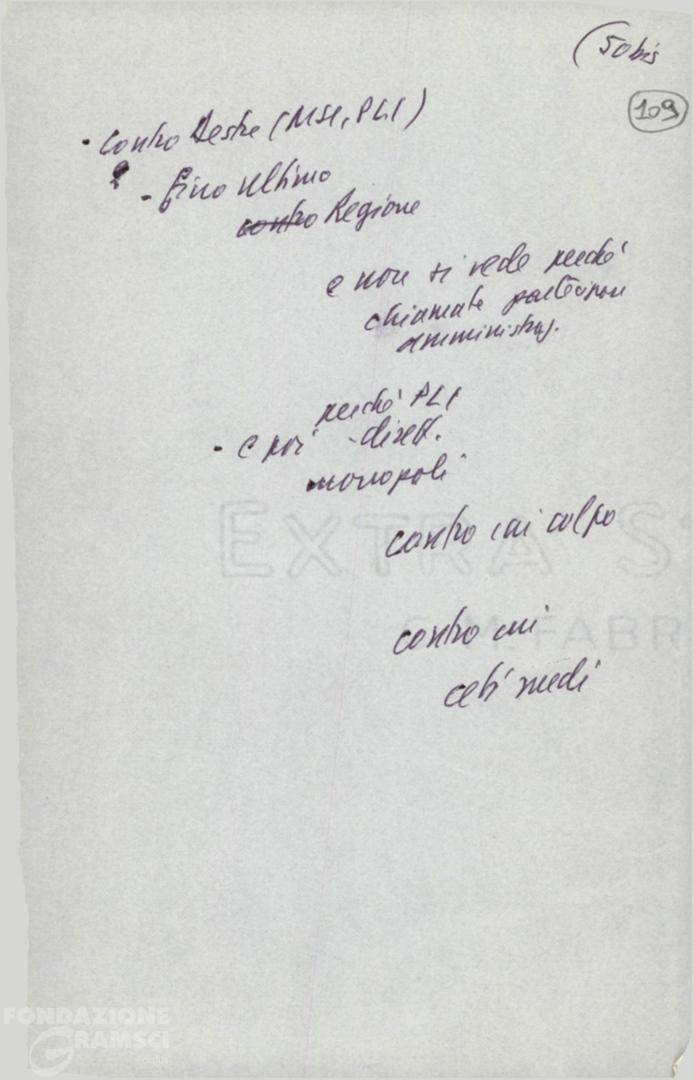 (50 bis
109
- Contro Destre (MSI, PLI)
- fino ultimo
contro Regione
e non si vede perché
chiamate partecipare
amministraz.
perché PLI
- e poi - dirett.
monopoli
contro cui colpo
contro cui
ceti medi
EXTRA S
FABR
FONDAZIONE
GRAMSCI